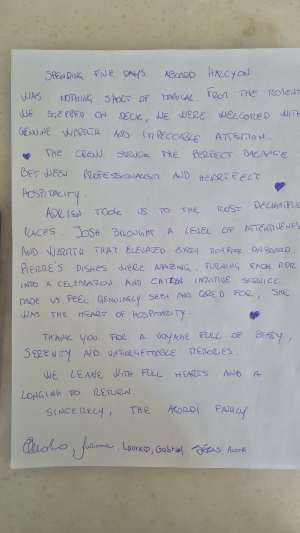 SPENDING FIVE DAYS ABOARD HALCYON
WAS NOTHING SHORT OF MAGICAL. FROM THE MOMENT
WE STEPPED ON DECK, WE WERE WELCOMED WITH
GENUINE WARMTH AND IMPECCABLE ATTENTION.
THE CREW STRUCK THE PERFECT BALANCE
BETWEEN PROFESSIONALISM AND HEARTFELT
HOSPITALITY.
TOOK US TO THE MOST
PLACES. JOSH BROUGHT A LEVEL OF ATTENTIVENESS
AND WARMTH THAT ELEVATED EVERY MOMENT ONBOARD.
PIERRE'S DISHES WERE AMAZING, TURNING EACH
INTO A CELEBRATION AND INTUITIVE SERVICE
MADE US FEEL GENUINELY SEEN AND CARED FOR, SHE
WAS THE HEART OF HOSPITALITY.
THANK YOU FOR A VOYAGE FULL OF BEAUTY,
SERENITY AND UNFORGETTABLE MEMORIES.
WE LEAVE WITH FULL HEARTS AND A
LONGING TO RETURN.
SINCERELY, THE FAMILY
Gabriel,